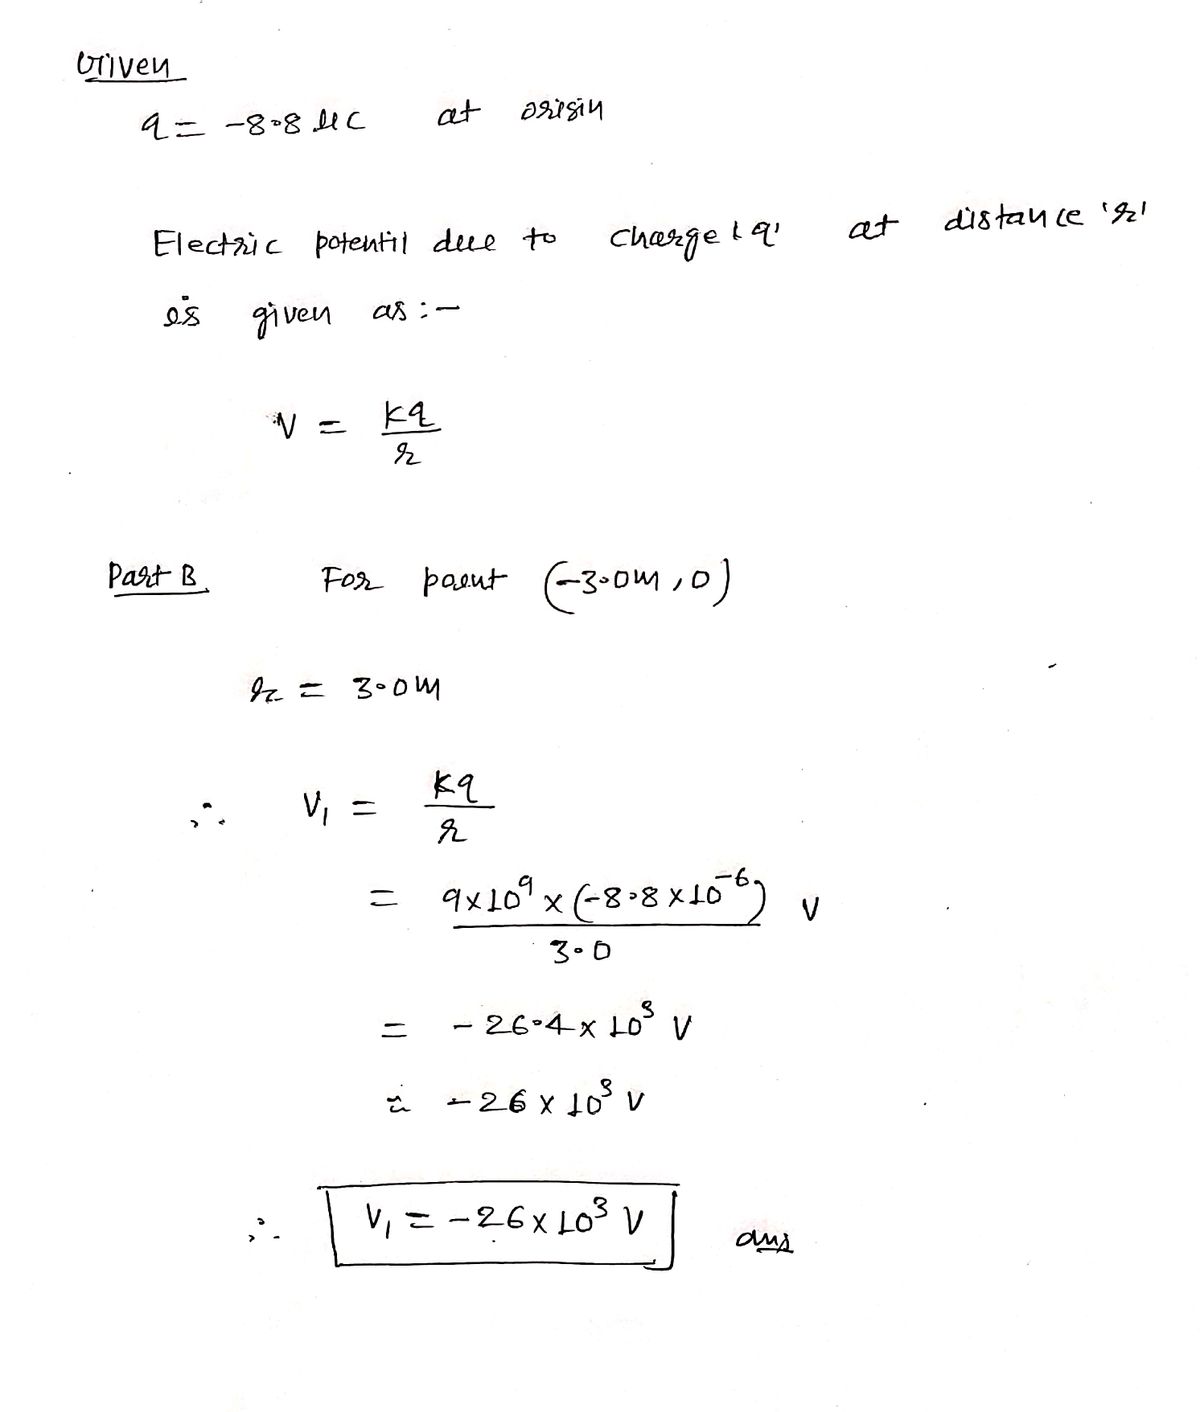 Given
q = -8.8 μC at origin
Electric potentil due to charge 'q' at distance 'r'
is given as :-
V = kq/r
Part B For point (-3.0m, 0)
r = 3.0m
∴ V₁ = kq/r
= 9×10⁹ × (-8.8×10⁻⁶)/3.0 V
= -26.4 × 10³ V
≈ -26 × 10³ V
∴ V₁ = -26 × 10³ V ans